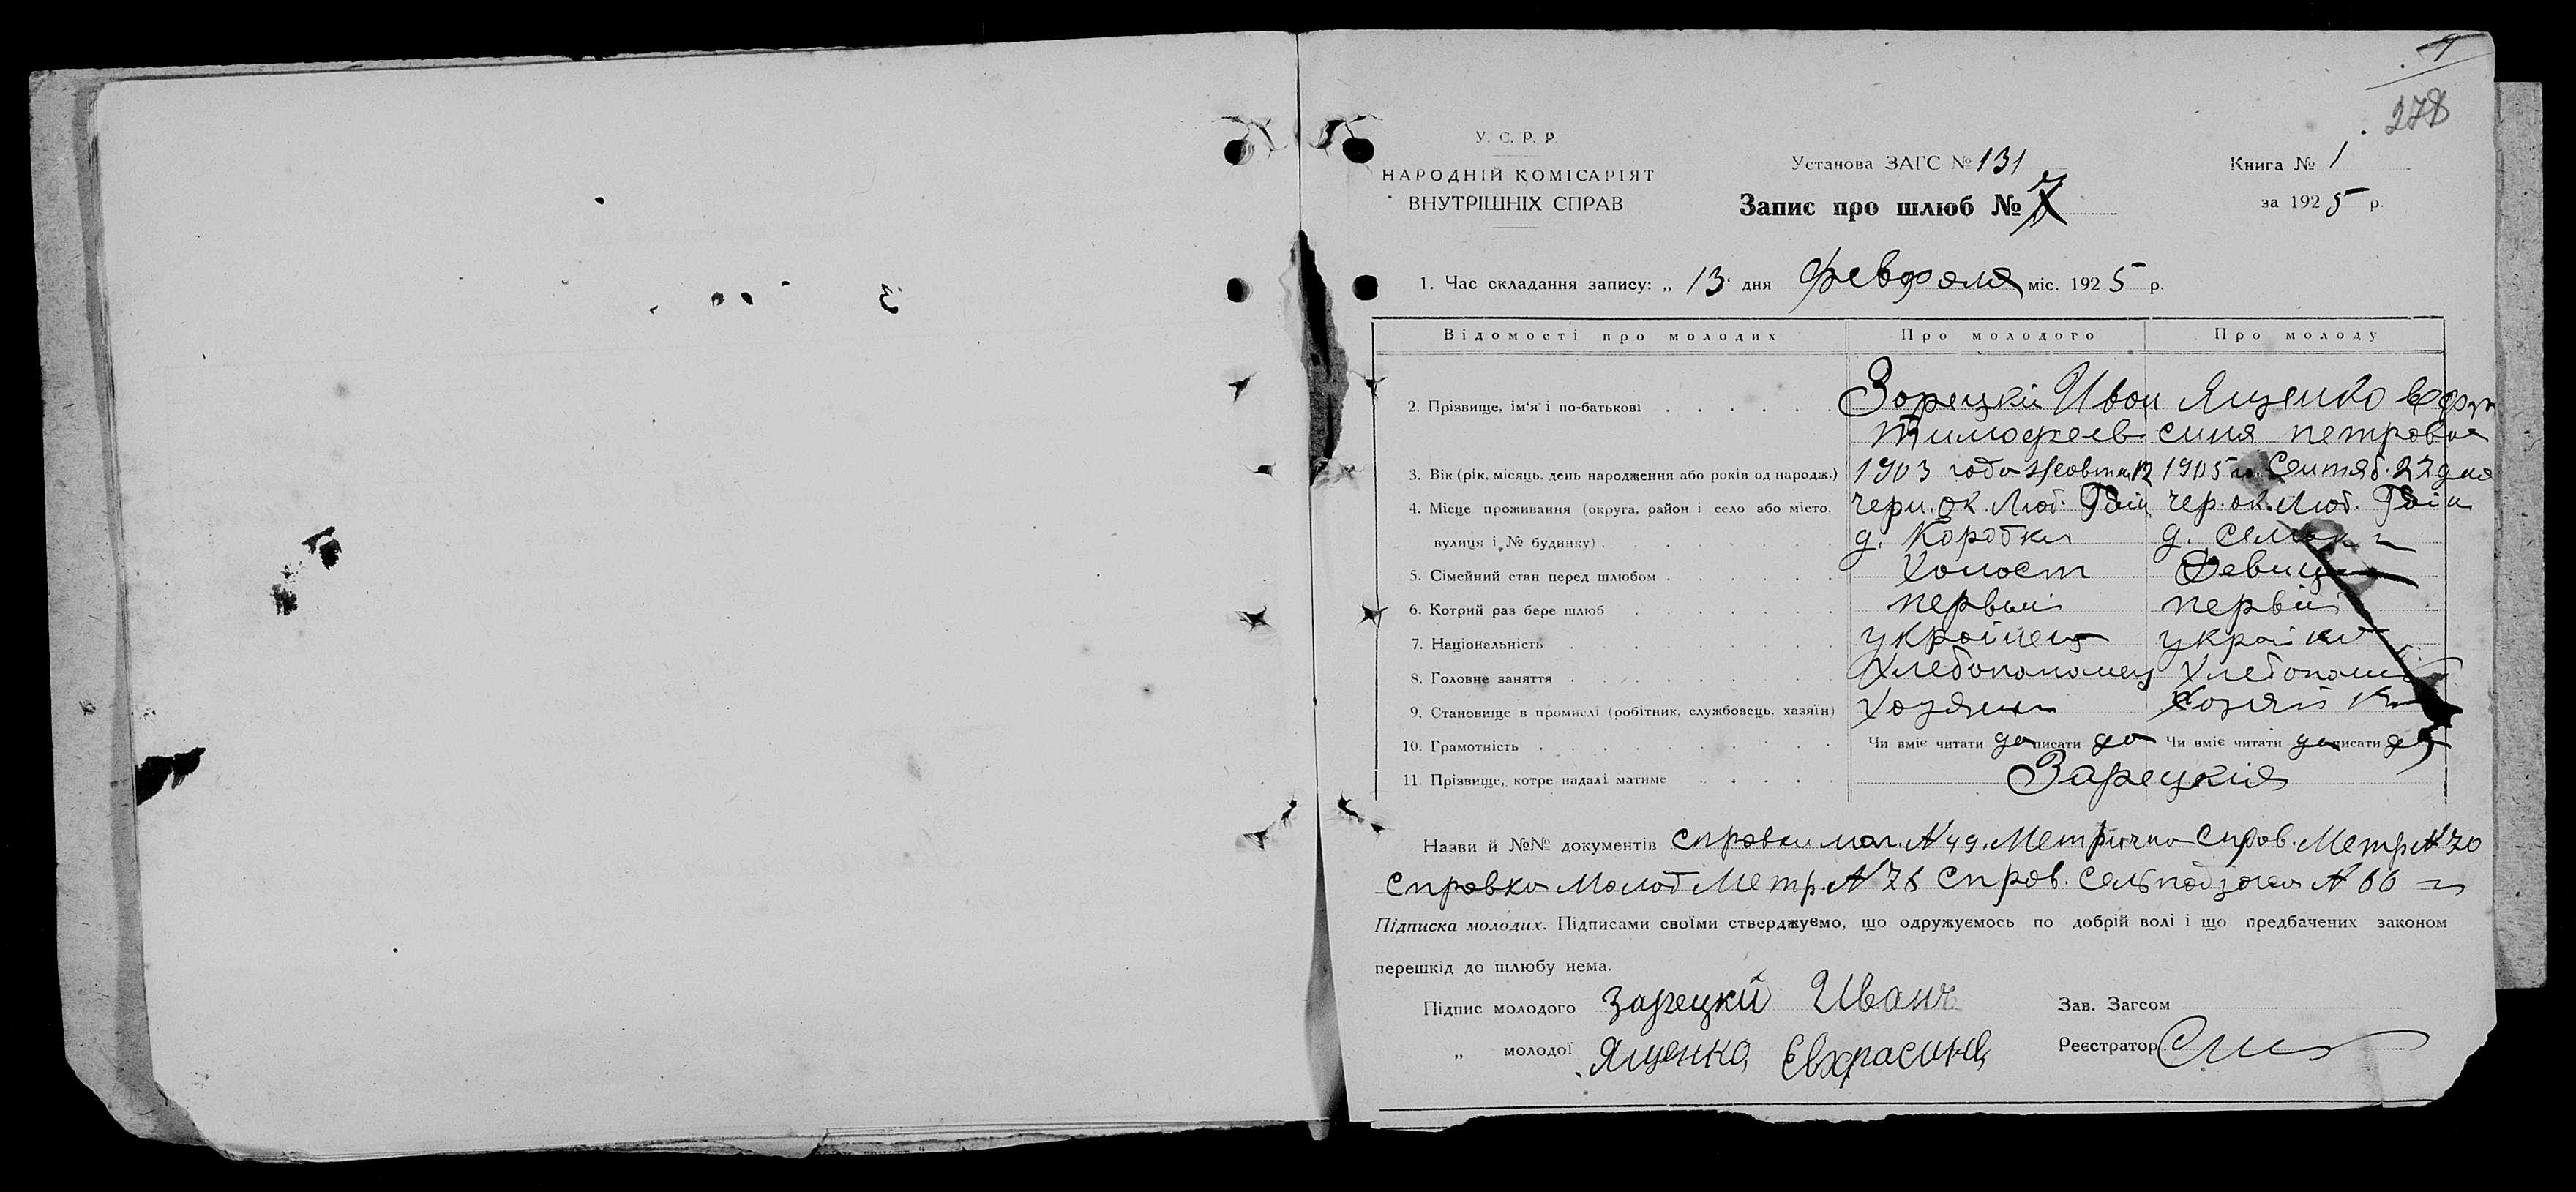 278
У. С. Р. Р.
НАРОДНІЙ КОМІСАРІЯТ
ВНУТРІШНІХ СПРАВ
Установа ЗАГС № 131
Запис про шлюб № 7
Книга № 1
за 1925 р.
1. Час складання запису: „ 13 дня февраля міс. 1925 р.
Відомості про молодих Про молодого Про молоду
2. Прізвище, ім'я і по-батькові Зорецкий Иван Ященко Евфро
Тимофеев синя петровна
3. Вік (рік, місяць, день народження або років од народж.) 1903 года 12 1905 Сентяб. 27 дня
4. Місце проживання (округа, район і село або місто, черн. ок. Люб. Рай чер. ок. Люб. Рай
вулиця і № будинку) д. Коробки д.
5. Сімейний стан перед шлюбом холост Девица
6. Котрий раз бере шлюб первый первый
7. Національність украинец украинка
8. Головне заняття Хлебопашец Хлебопаш
9. Становище в промислі (робітник, службовець, хазяїн) Хозяин Хозяйка
10. Грамотність Чи вміє читати да писати да Чи вміє читати да писати да
11. Прізвище, котре надалі матиме Зарецкия
Назви й №№ документів справки мол. №49. Метрична Справ. Метр №70
Справка Молод Метр. № Справ. № 66
Підписка молодих. Підписами своїми стверджуємо, що одружуємось по добрій волі і що предбачених законом
перешкід до шлюбу нема.
Підпис молодого Зарецкий Иван Зав. Загсом
„ молодої Ященко Евхрасина Реєстратор